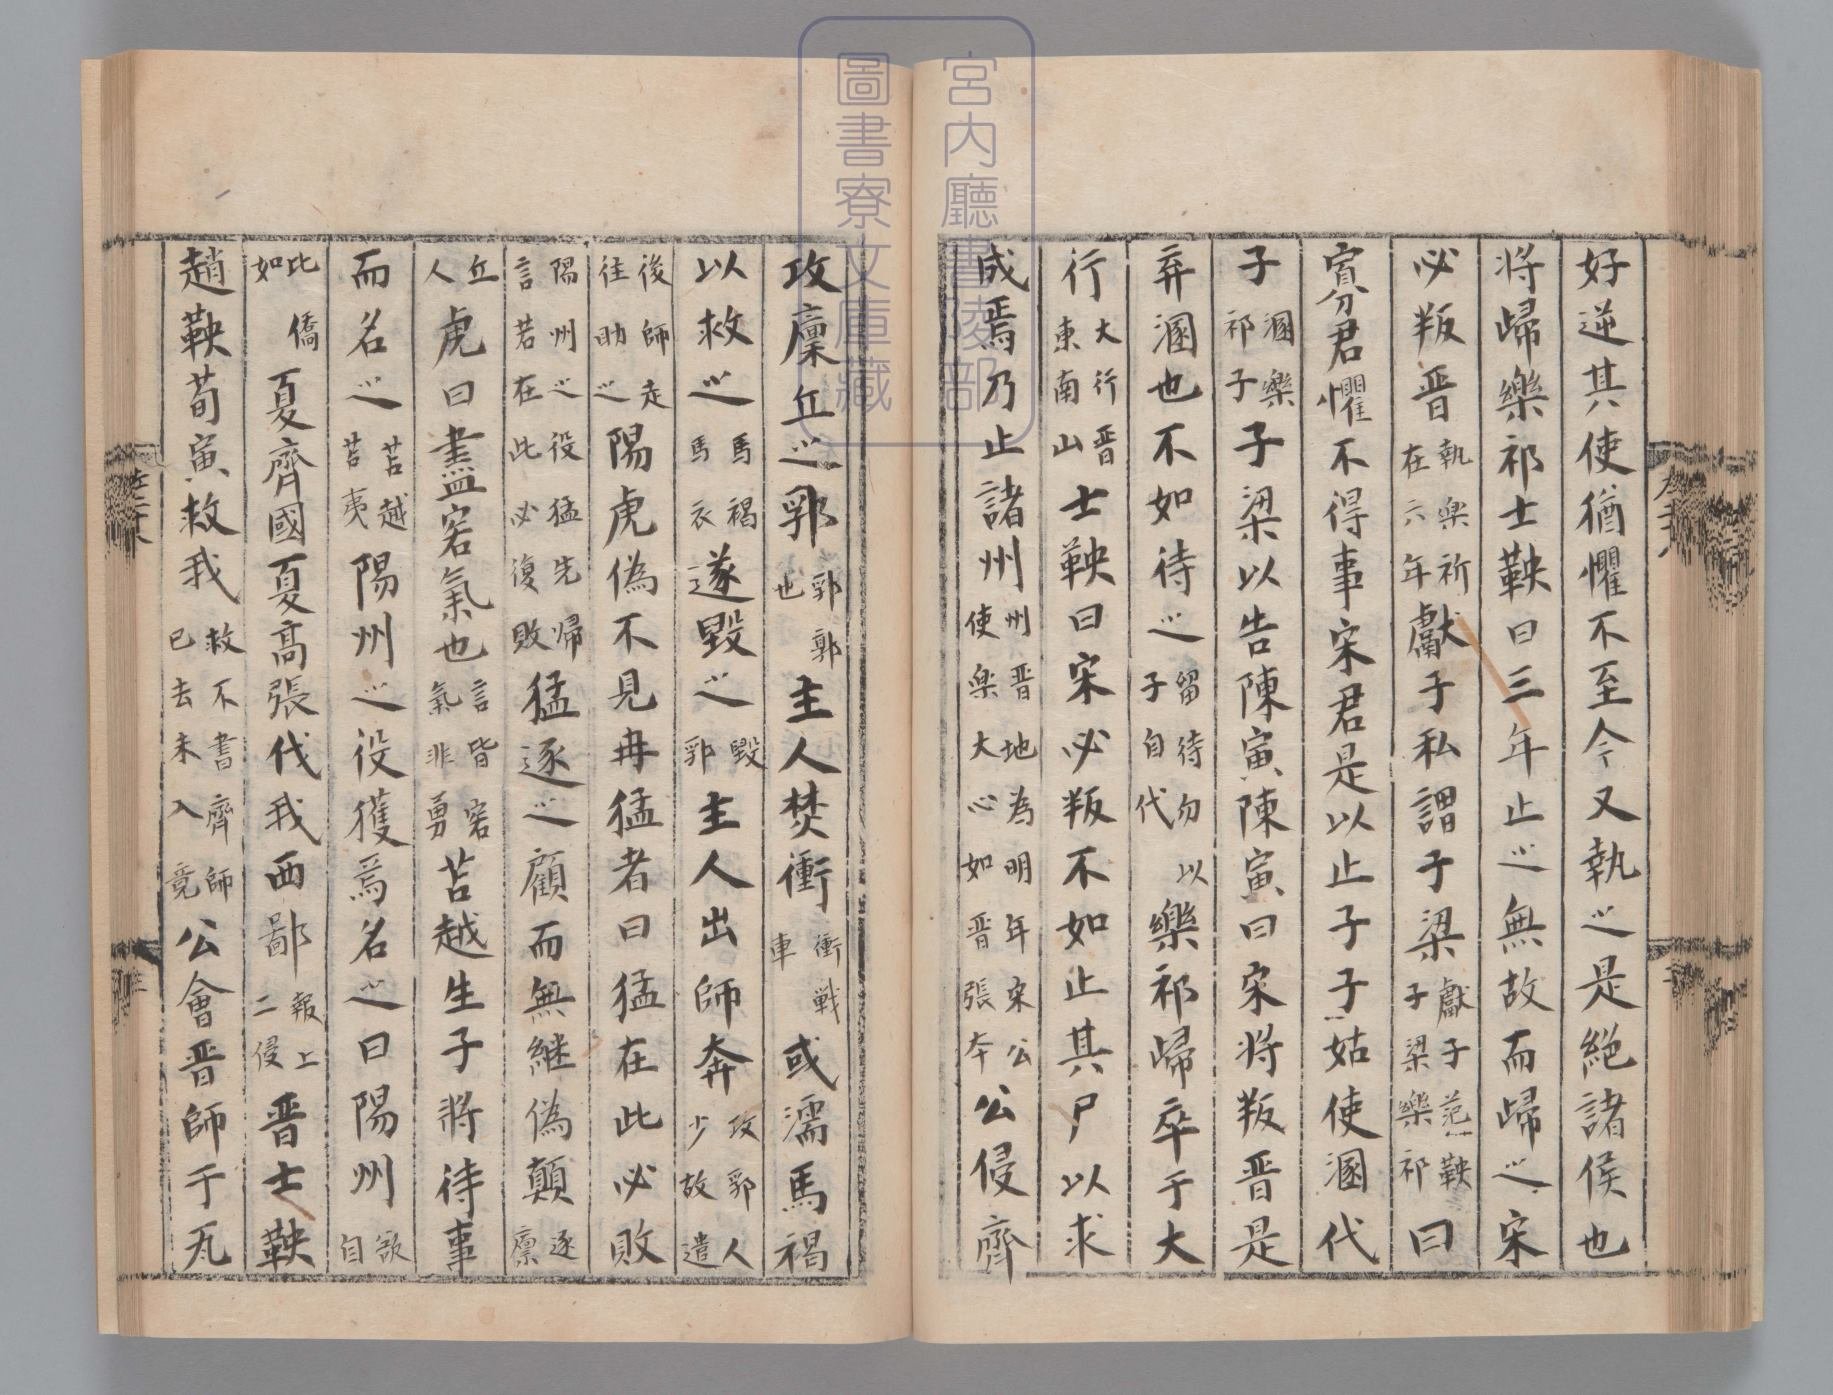 好逆其使猶懼不至今又執之是絕諸侯也
将歸樂祁士鞅曰三年止之無故而歸之宋
必叛晋執楽祈在六年獻子私謂子梁獻子范鞅子梁樂祁曰
寡君懼不得事宋君是以止子子姑使溷代
子溷樂祁子子梁以告陳寅陳寅曰宋将叛晋是
弃溷也不如待之留待勿以子自代樂祁歸卒于大
行大行晋東南山士鞅曰宋必叛不如止其尸以求
成焉乃止諸州州晋地為明年宋公使楽大心如晋張本公侵齊
攻廩丘之郛郛郭也主人焚衝衝戦車或濡馬褐
以救之馬褐馬衣遂毀之毀郛主人出師奔攻郛人少故遣
後師走往助之陽虎偽不見冉猛者曰猛在此必敗
陽州之役猛先歸言若在此必復敗猛逐之顧而無継偽顛逐廩
丘人虎曰盡客氣也言皆客氣非勇苫越生子将待事
而名之苫越苫夷陽州之役獲焉名之曰陽州欲自
比僑如夏齊國夏高張伐我西鄙報上二侵晋士鞅
趙鞅荀寅救我救不書齊師已去未入竟公會晋師于瓦
宮内廳書陵部
圖書寮文庫藏